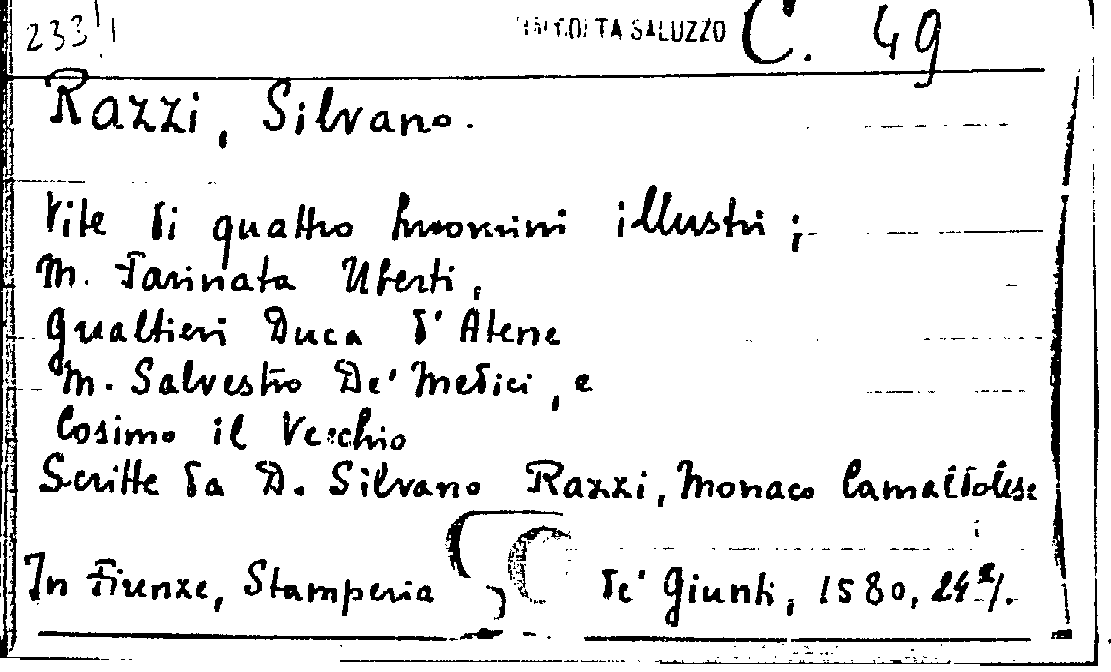 233
RACCOLTA SALUZZO C. 49
Razzi, Silvano.
Vite di quattro huomini illustri;
M. Farinata Uberti,
Gualtieri Duca d'Atene
M. Salvestro De' Medici, e
Cosimo il Vecchio
Scritte da D. Silvano Razzi, Monaco Camaldolese
In Firenze, Stamperia de' Giunti, 1580,